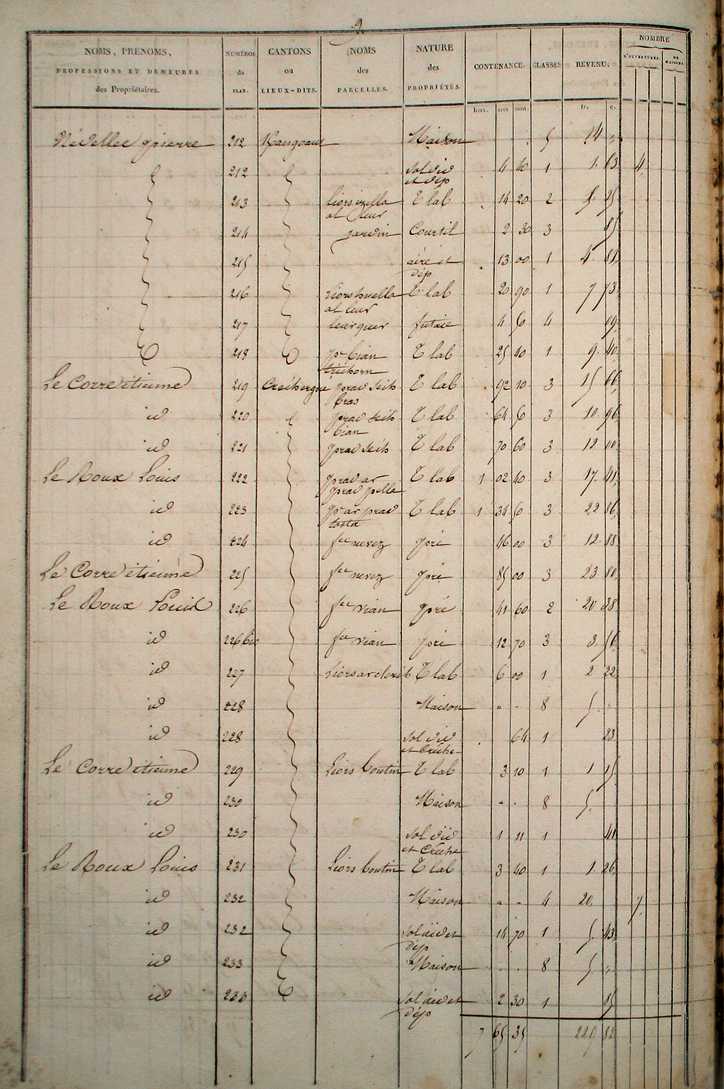 2
NOMS, PRENOMS, PROFESSIONS ET DEMEURES des Propriétaires. NUMÉROS du PLAN. CANTONS ou LIEUX-DITS. NOMS des PARCELLES. NATURE des PROPRIÉTÉS. CONTENANCE. CLASSES REVENU. NOMBRE D'OUVERTURE. DE MAISONS.
hect. ares cent. fr. c.
Névellec pierre 212 Maison 5 14 "
212 Sol dud et dép 4 40 1 1 63 4
213 T lab 14 20 2 5 25
at leur
214 jardin Courtil 2 30 3 85
215 aire et dép 13 00 1 4 81
216 T lab 20 90 1 7 73
at leur
217 futaie 4 50 4 09
218 pr bian T lab 25 40 1 9 40
Le Corre étienne 219 prad seih bras T lab 92 10 3 15 66
id 220 prad seih bian T lab 64 50 3 10 96
id 221 prad seih T lab 70 60 3 12 00
Le Roux Louis 222 prad ar prad pella T lab 1 02 40 3 17 41
id 223 pr ar prad tosta T lab 1 34 50 3 22 86
id 224 fte nevez pré 46 00 3 12 88
Le Corre étienne 225 fte nevez pré 85 00 3 23 80
Le Roux Louis 226 fte vian pré 41 60 2 20 38
id 226 bis fte vian pré 12 70 3 3 56
id 227 T lab 6 00 1 2 22
id 228 Maison " . 8 5 .
id 228 Sol dud et Crêche 64 1 23
Le Corre étienne 229 Liors Coutin T lab 3 10 1 1 15
id 230 Maison " . 8 5 .
id 230 Sol dud et Crêche 1 11 1 41
Le Roux Louis 231 Liors Coutin T lab 3 40 1 1 26
id 232 Maison " " 4 20 7
id 232 Sol aid et dép 14 70 1 5 43
id 233 Maison . . 8 5 "
id 233 Sol aid et dép 2 30 1 85
7 65 35 229 82